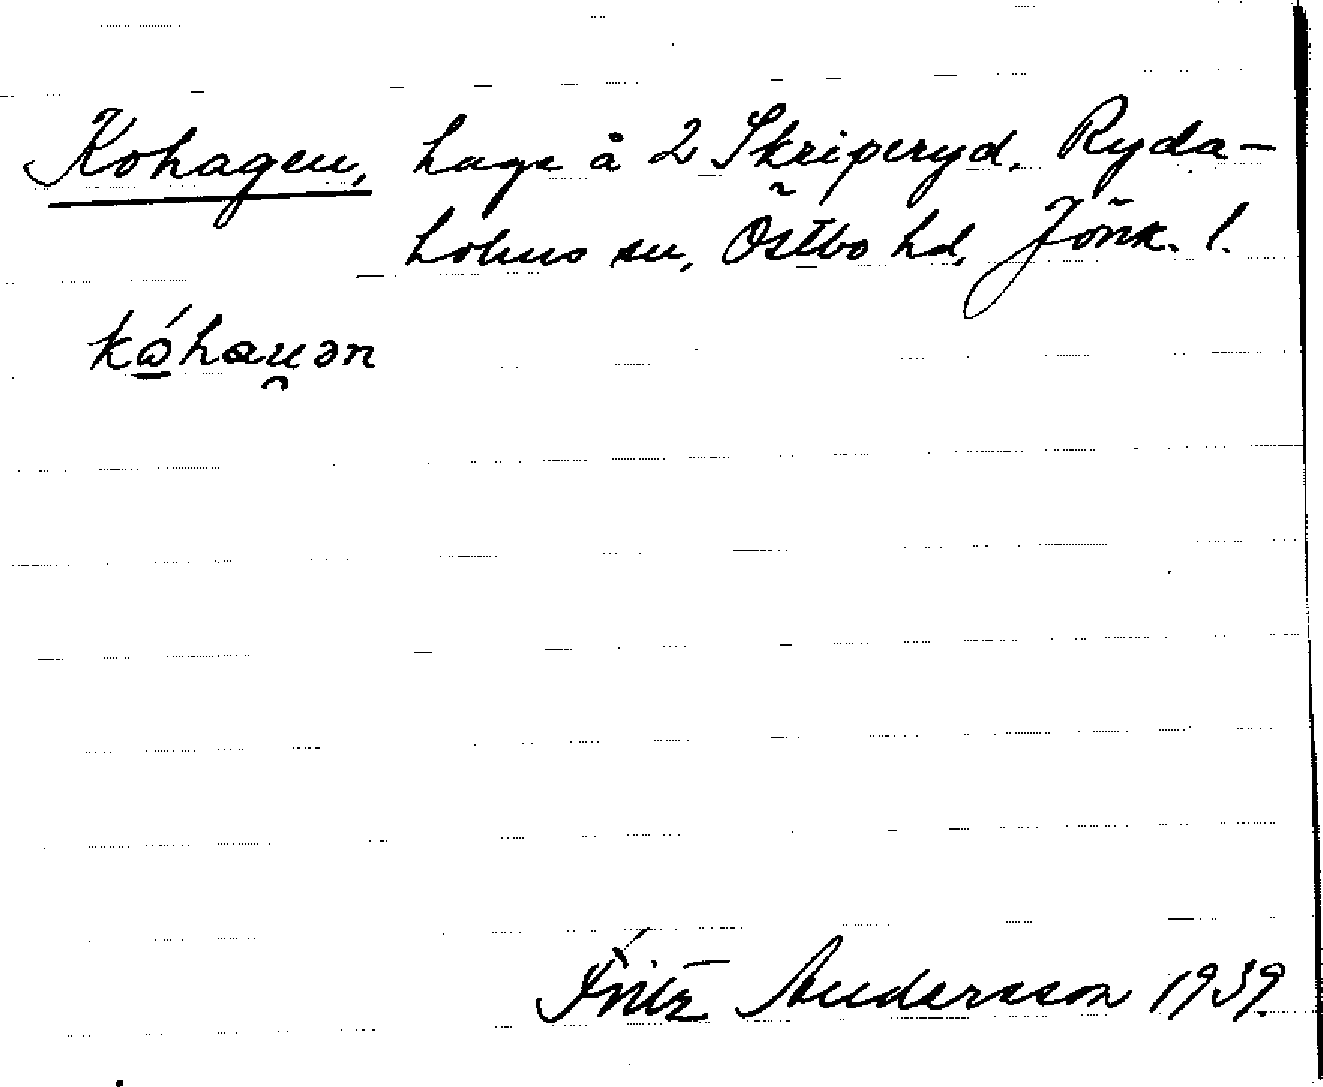 Kohagen, hage å 2 Skriperyd. Ryda-
holms sn, Östbo hd, Jönk. l.
kóhau̯ən
Fritz Andersson 1939.